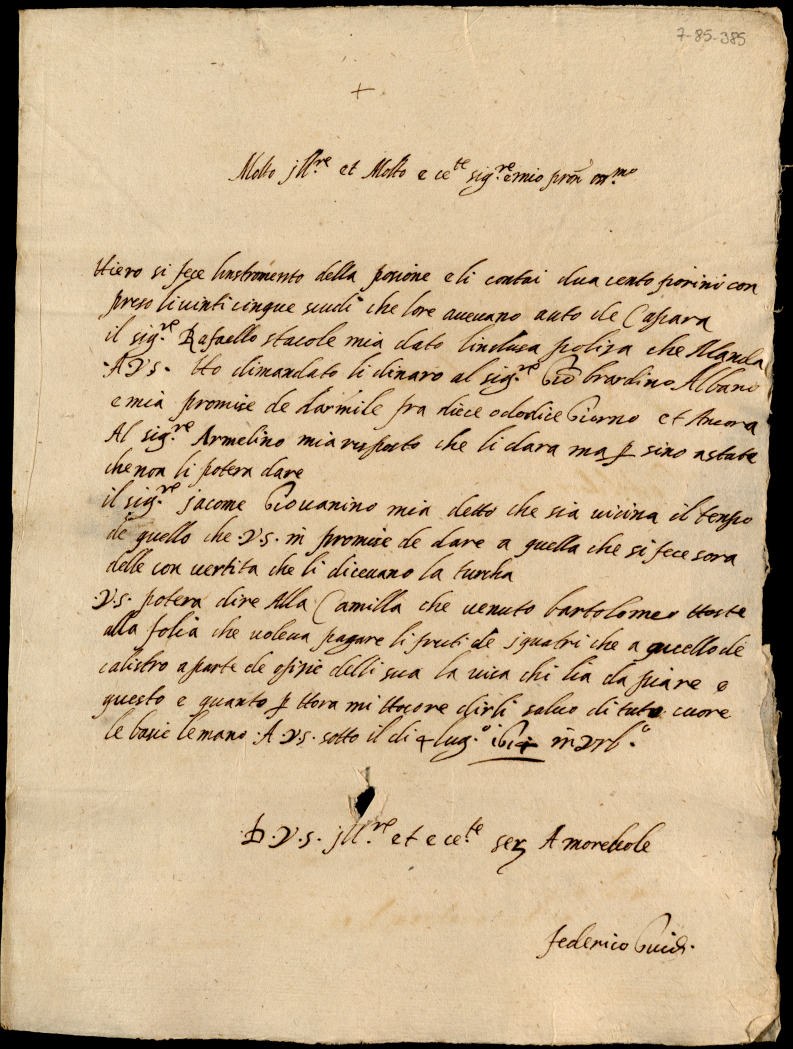 7-85-385
+
Molto jll.re et Molto e ce.te sig.re e mio pron oss.mo
Hiero si fece linstromento della posione e li contai dua cento fiorini con
preso li uinti cinque scudi che lore aueuano auto de Capara
il sig.re Rafaello stacole mia dato linclusa polisa che Manda
.A V.S. Ho dimandato li dinaro al sig.re Gio brardino Albano
e mia promise de darmile fra diece o dodice Giorno et Ancora
Al sig.re Armelino mia resposto che li dara ma p sino a state
che non li potera dare
il sig.re jacome Giouanino mia detto che sia uicina il tenpo
de quello che .V.S. in promise de dare a quella che si fece sora
delle con uertita che li diceuano la turcha
.V.S. potera dire Alla Camilla che uenuto bartolomeo Hoste
alla folia che uoleua pagare li fruti de squatri che a quello de
calistro a parte de delli sua la uica chi lia da piare e
questo e quanto p Hora mi Hocore dirli saluo di tuto cuore
le basie le mano .A .V.S. sotto il di 4 lug.o 1614 in Vrb.o
D.V.S. jll.re et e ce.te ser Amoreuole
federico Guidi.